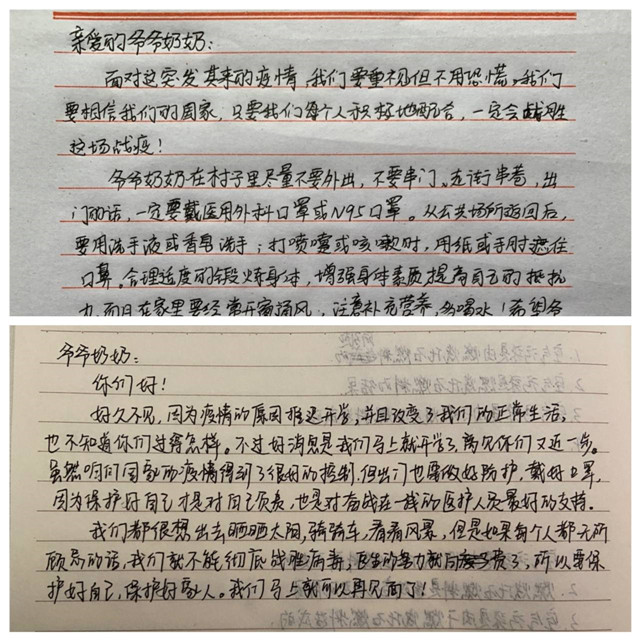 亲爱的爷爷奶奶:
面对这突发其来的疫情,我们要重视但不用恐慌。我们
要相信我们的国家,只要我们每个人积极地配合,一定会战胜
这场战疫!
爷爷奶奶在村子里尽量不要外出,不要串门、走街串巷,出
门的话,一定要戴医用外科口罩或N95口罩。从公共场所返回后,
要用洗手液或香皂洗手;打喷嚏或咳嗽时,用纸或手肘遮住
口鼻。合理适度的锻炼身体,增强身体素质提高自己的抵抗
力,而且在家里要经常开窗通风,注意补充营养,多喝水!希望爷
爷爷奶奶:
你们好!
好久不见,因为疫情的原因推迟开学,并且改变了我们的正常生活,
也不知道你们过得怎样。不过好消息是我们马上就开学了,离见你们又近一步。
虽然咱们国家的疫情得到了很好的控制,但出门也需做好防护,戴好口罩,
因为保护好自己才是对自己负责,也是对奋战在一线的医护人员最好的支持。
我们都很想出去晒晒太阳,骑骑车,看看风景,但是如果每个人都无所
顾忌的话,我们就不能彻底战胜病毒,医生的努力就白费了,所以要保
护好自己,保护好家人。我们马上就可以再见面了!